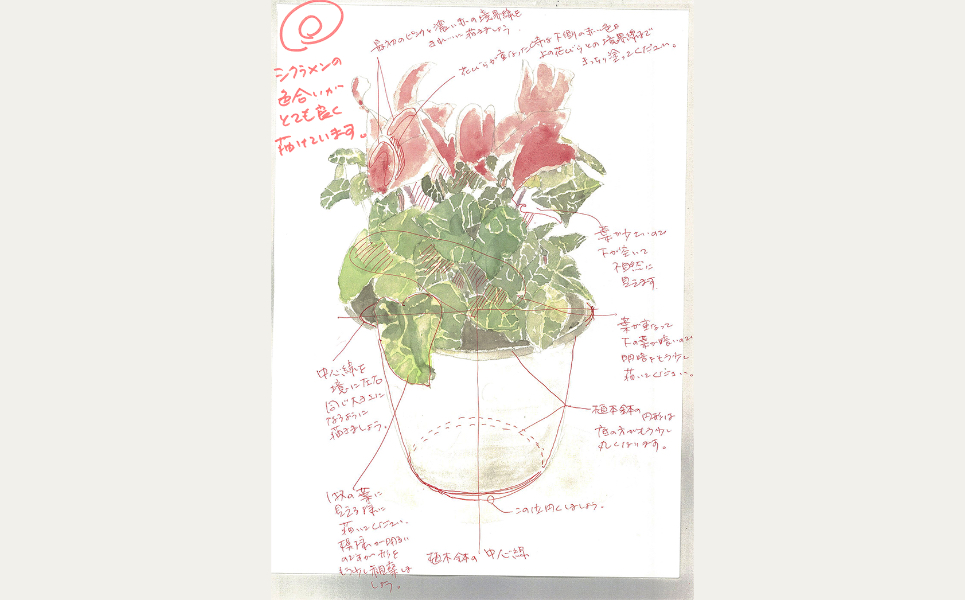 シクラメンの
色合いが
とても良く
描けています。
最初のピンクと濃い赤の境界線を
きれいに描きましょう。
花びらが重なった時は下側の赤い色を
上の花びらとの境界線まで
きっちり塗ってください。
葉が少ないので
下が空いて
不自然に
見えます
葉が重なって
下の葉が暗いので
明暗をもう少し
描いてください。
植木鉢の円形は
底の方がもう少し
丸くなります。
この位円くしましょう。
植木鉢の中心線
中心線を
境に左右
同じ大きさに
なるように
描きましょう。
1枚の葉に
見える様に
描いてください。
模様が明るい
のですが形を
もう少し
しょう。